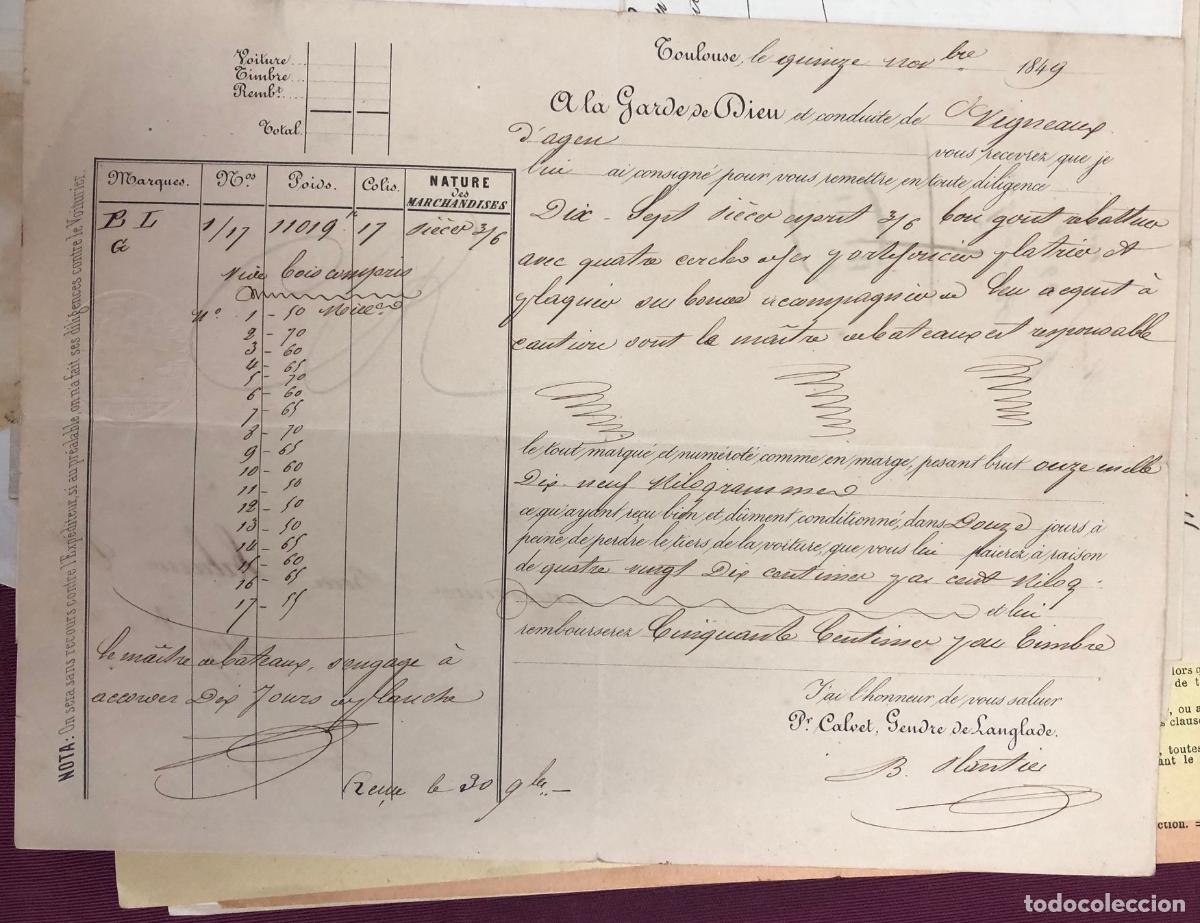 Toulouse, le quinze nov bre 1849
Voiture
Timbre
Rembt.
Total
A la Garde de Dieu et conduite de Vigneaux
d'agen vous recevrez que je
lui ai consigné pour vous remettre en toute diligence
Marques. Nos Poids. Colis. NATURE des MARCHANDISES
B L 1/17 11019 k 17 pièces 3/6
G
bois compris
No 1 - 50
2 - 70
3 - 60
4 - 65
5 - 70
6 - 60
7 - 65
8 - 70
9 - 65
10 - 60
11 - 50
12 - 50
13 - 50
14 - 65
15 - 60
16 - 65
17 - 55
le maître de bateaux, s'engage à
accorder Dix Jours de planche
le 30 9bre
NOTA: On sera sans recours contre l'Expéditeur, si au préalable, on n'a fait ses diligences contre le Voiturier.
Dix-Sept pièces esprit 3/6 bon goût
avec quatre cercles de fer et
accompagnées de acquit à
caution dont le maître de bateaux est responsable
le tout marqué et numéroté comme en marge, pesant brut onze mille
Dix-neuf Kilogrammes
ce qu'ayant reçu bien et dûment conditionné, dans Douze jours à
peine de perdre le tiers de la voiture, que vous lui paierez à raison
de quatre vingt Dix centimes par cent Kilog
et lui
rembourserez Cinquante Centimes pour Timbre
J'ai l'honneur de vous saluer
Pr. Calvet, Gendre de Langlade.
B.
lors q
de t
, ou a
clause
, toutes
ant le
ction. =
todocoleccion